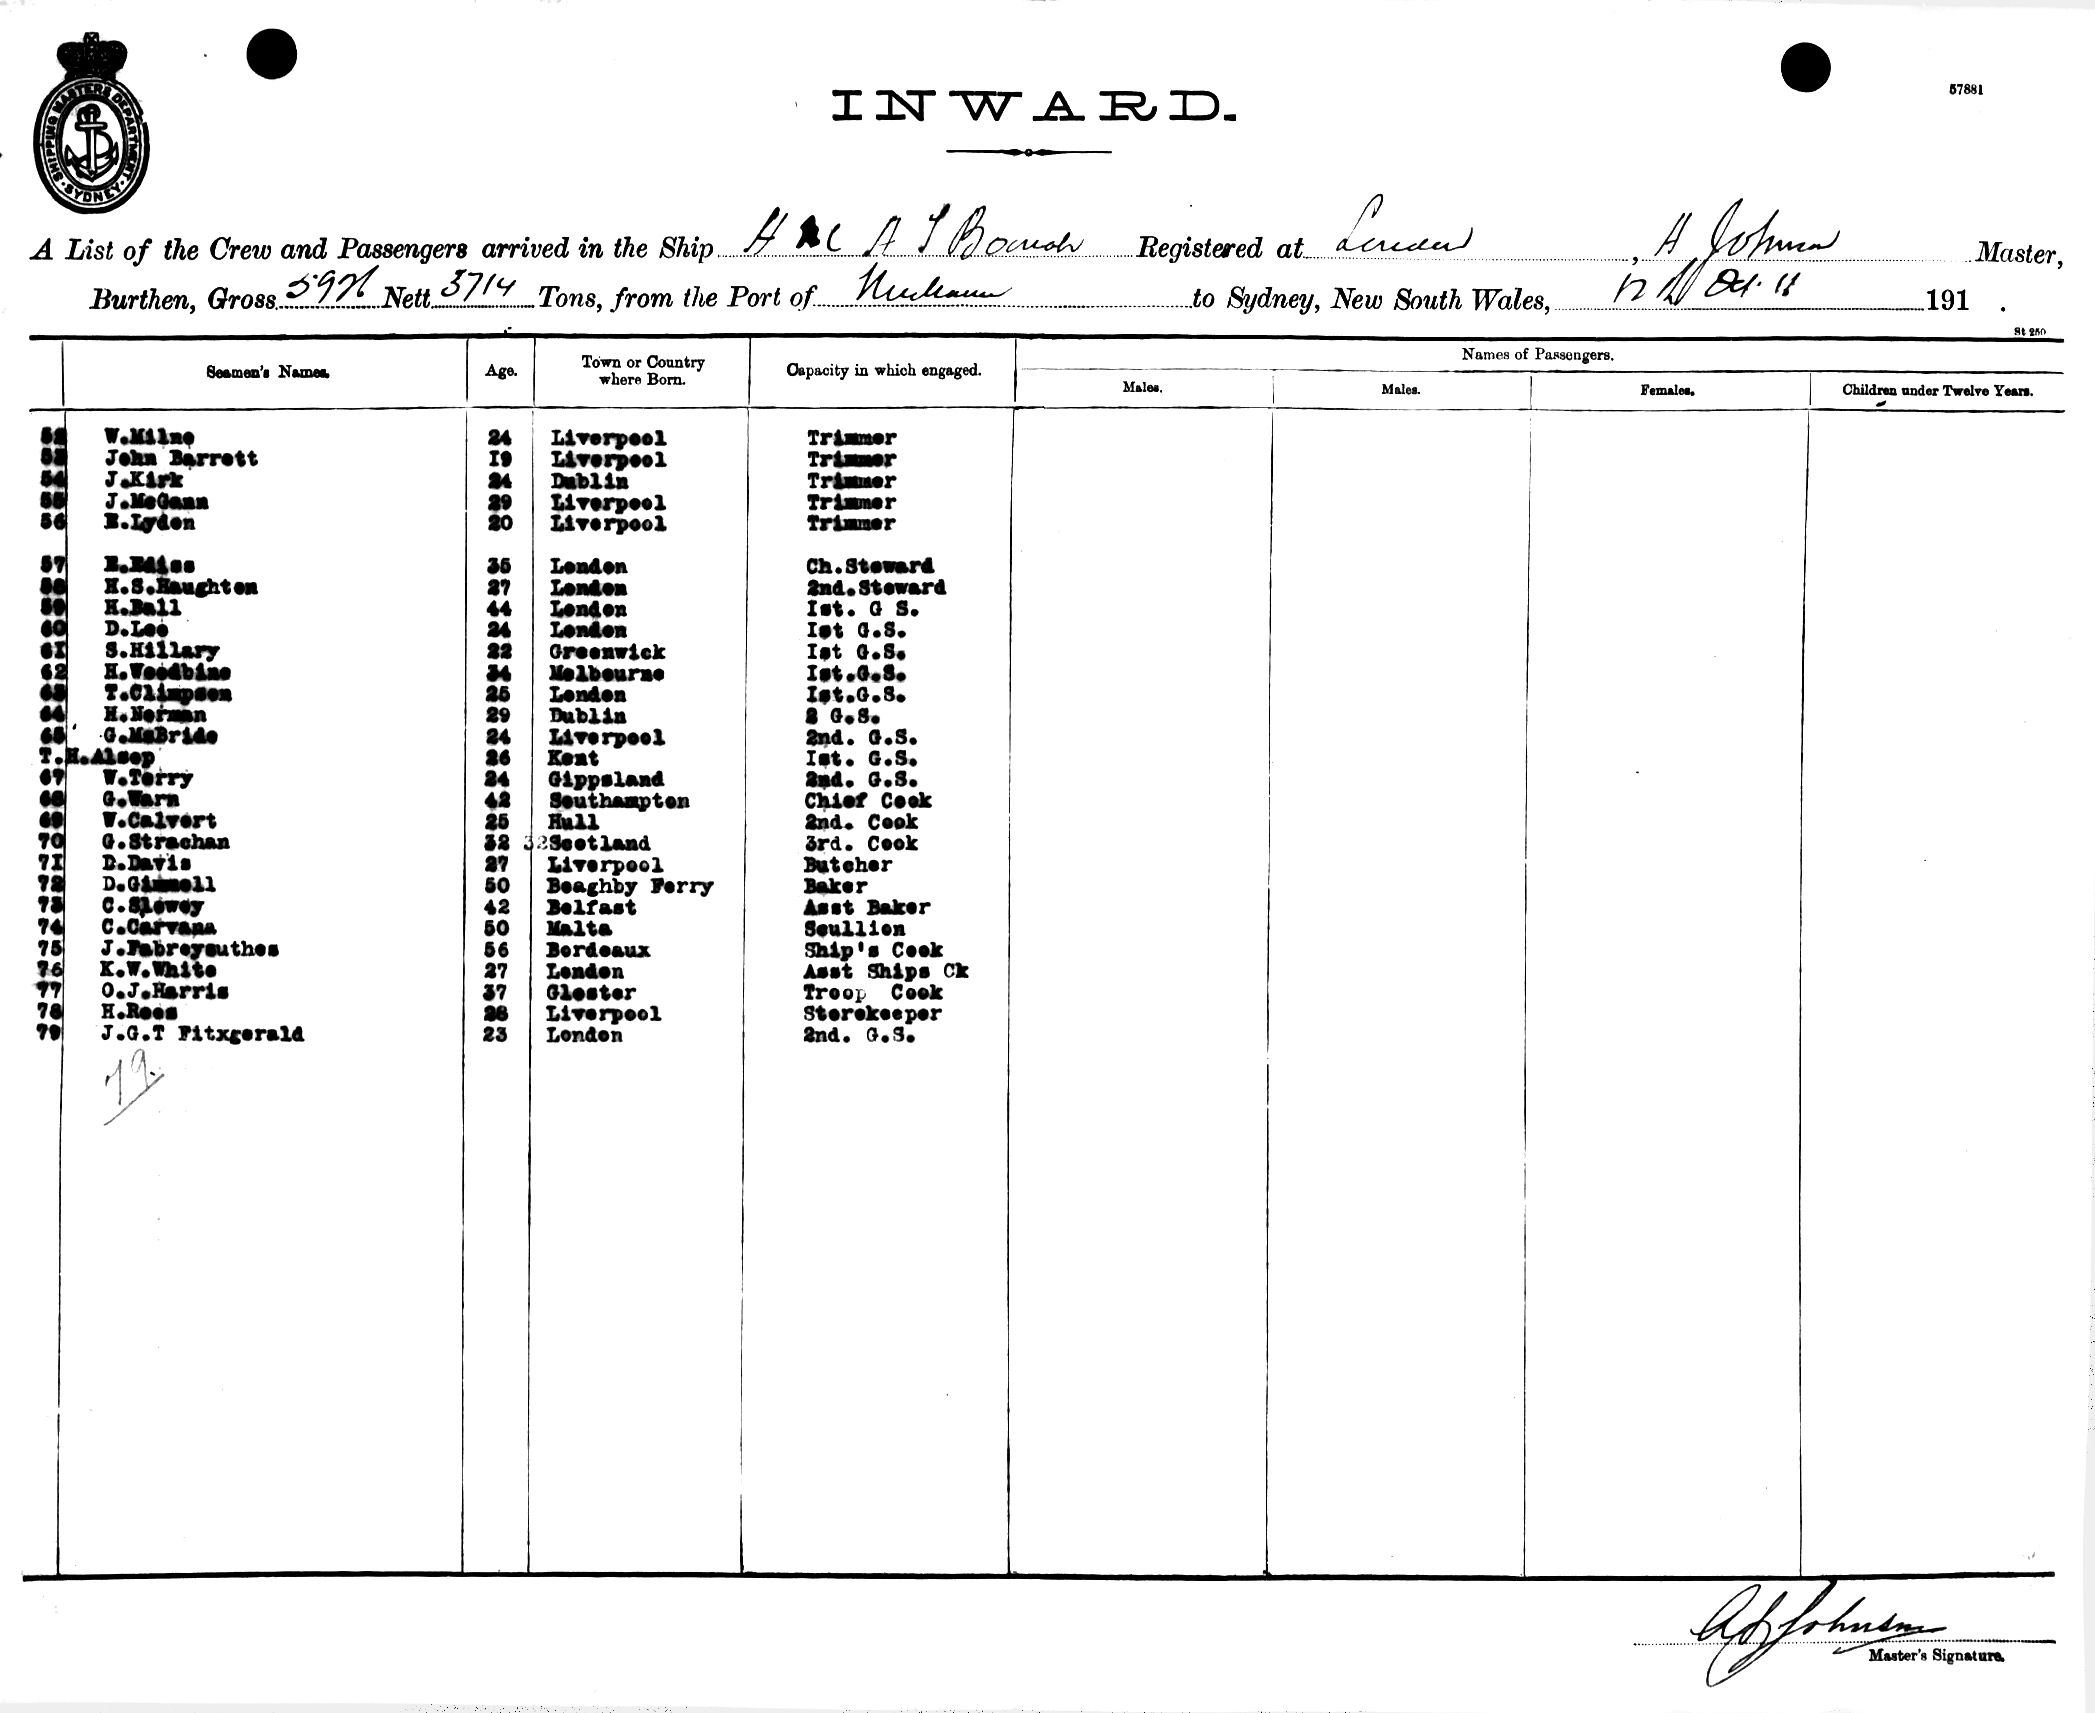 SHIPPING MASTERS DEPARTMENT
SYDNEY
INWARD.
57881
A List of the Crew and Passengers arrived in the Ship H A T Registered at London, A Johnson Master,
Burthen, Gross Nett 3714 Tons, from the Port of to Sydney, New South Wales, 12 Oct. 191 .
St 250
Seamen's Names. Age. Town or Country where Born. Capacity in which engaged. Names of Passengers.
Males. Males. Females. Children under Twelve Years.
52 W.Milne 24 Liverpool Trimmer
53 John Barrett I9 Liverpool Trimmer
54 J.Kirk 24 Dublin Trimmer
55 J.McGann 29 Liverpool Trimmer
56 E.Lyden 20 Liverpool Trimmer
57 35 London Ch.Steward
58 H.S.Haughton 27 London 2nd.Steward
59 H.Ball 44 London Ist. G S.
60 D.Lee 24 London Ist G.S.
6I S.Hillary 22 Greenwick Ist G.S.
62 H.Woodbine 34 Melbourne Ist.G.S.
63 T.Climpson 25 London Ist.G.S.
64 H.Norman 29 Dublin 2 G.S.
65 G.McBride 24 Liverpool 2nd. G.S.
T.H.Alsop 26 Kent Ist. G.S.
67 W.Terry 24 Gippsland 2nd. G.S.
68 G.Warn 42 Southampton Chief Cook
69 W.Calvert 25 Hull 2nd. Cook
70 G.Strachan 32 32 Scotland 3rd. Cook
7I D.Davis 27 Liverpool Butcher
72 D.Gimmell 50 Beaghby Ferry Baker
73 C.Slowey 42 Belfast Asst Baker
74 C.Carvana 50 Malta Scullion
75 J.Fabreysuthes 56 Bordeaux Ship's Cook
76 K.W.White 27 London Asst Ships Ck
77 O.J.Harris 37 Gloster Troop Cook
78 H.Rees 28 Liverpool Storekeeper
79 J.G.T Fitxgerald 23 London 2nd. G.S.
79.
Johnson
Master's Signature.